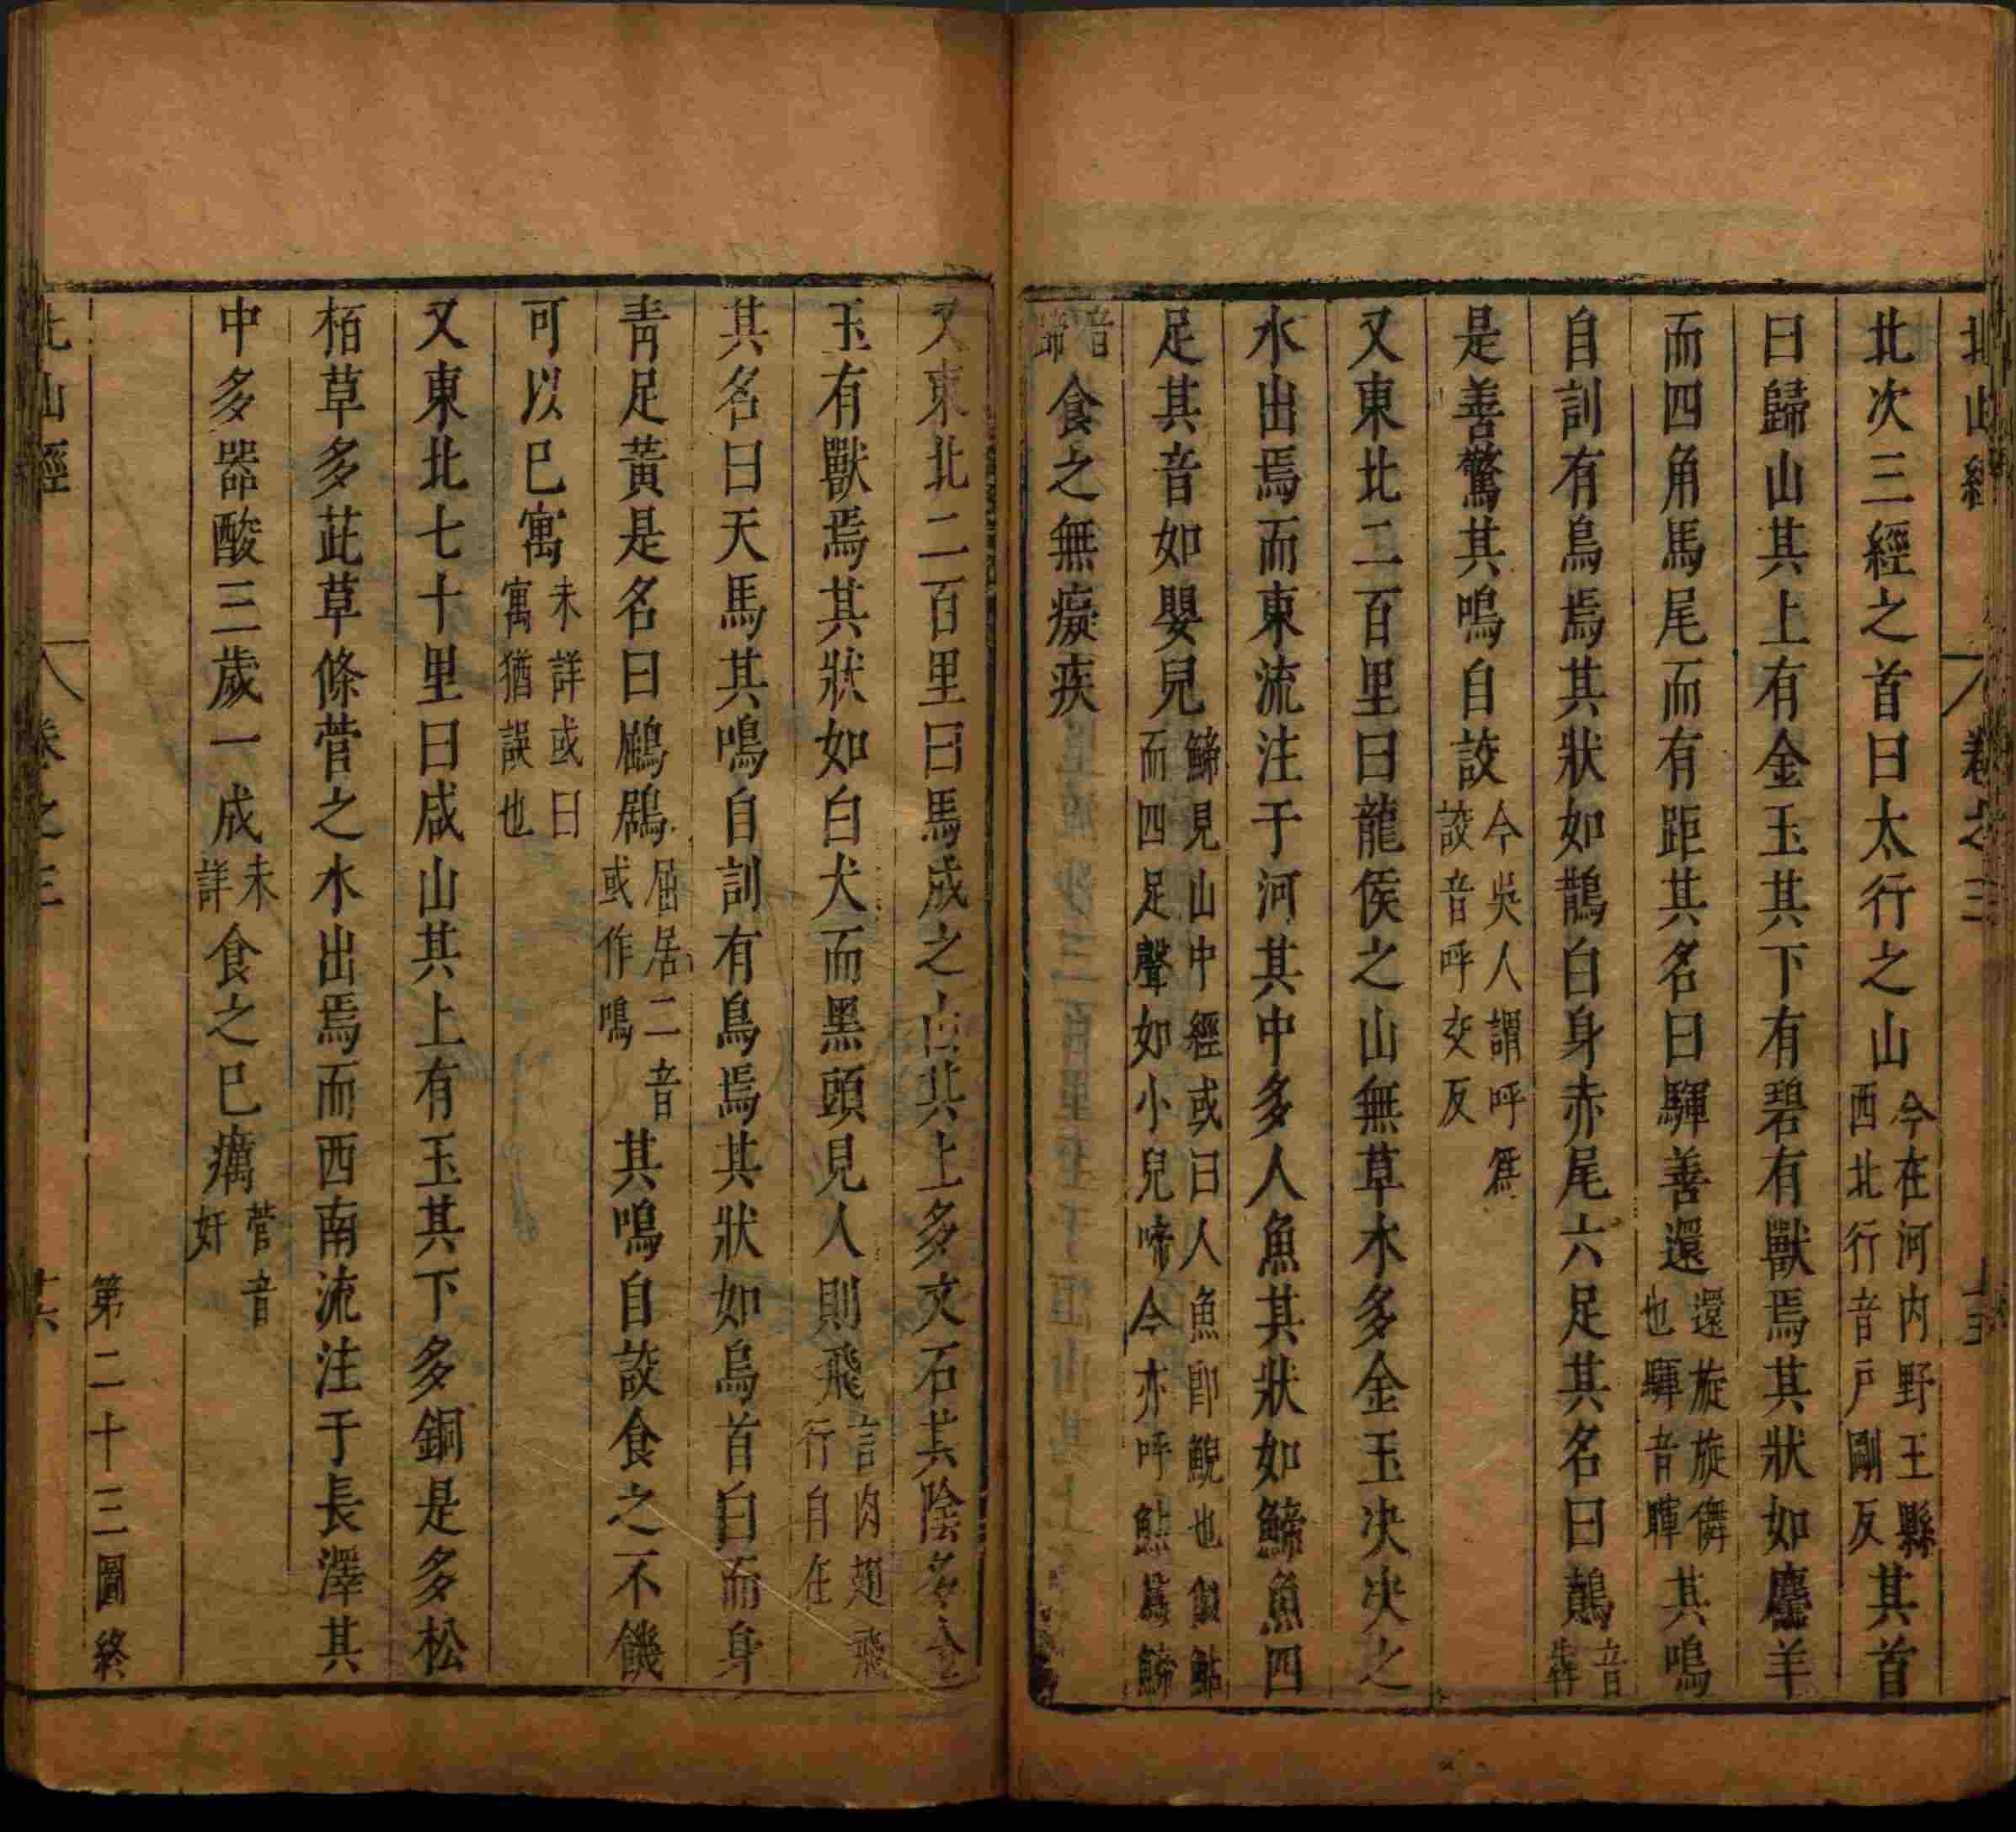 北山經 卷之三
北次三經之首曰太行之山今在河内野王縣西北行音戸剛反其首
曰歸山其上有金玉其下有碧有獸焉其狀如麢羊
而四角馬尾而有距其名曰驒善還還旋旋儛也驒音暉其鳴
自訓有鳥焉其狀如鵲白身赤尾六足其名曰鷾音犇
是善驚其鳴自詨今吳人謂呼爲詨音呼交反
又東北二百里曰龍侯之山無草木多金玉決決之
水出焉而東流注于河其中多人魚其狀如鯑魚四
足其音如嬰兒鯑見山中經或曰人魚即鯢也似鮎而四足聲如小兒啼今亦呼鮎爲鯑
音啼食之無癡疾
又東北二百里曰馬成之山其上多文石其陰多金
玉有獸焉其狀如白犬而黑頭見人則飛言肉翅飛行自在
其名曰天馬其鳴自訓有鳥焉其狀如烏首白而身
青足黃是名曰鶌鶋屈居二音或作鳴其鳴自詨食之不饑
可以已寓未詳或曰寓猶誤也
又東北七十里曰咸山其上有玉其下多銅是多松
栢草多茈草條菅之水出焉而西南流注于長澤其
中多器酸三歲一成未詳食之已癘菅音奸
第二十三圖終
北山經 卷之三 十六